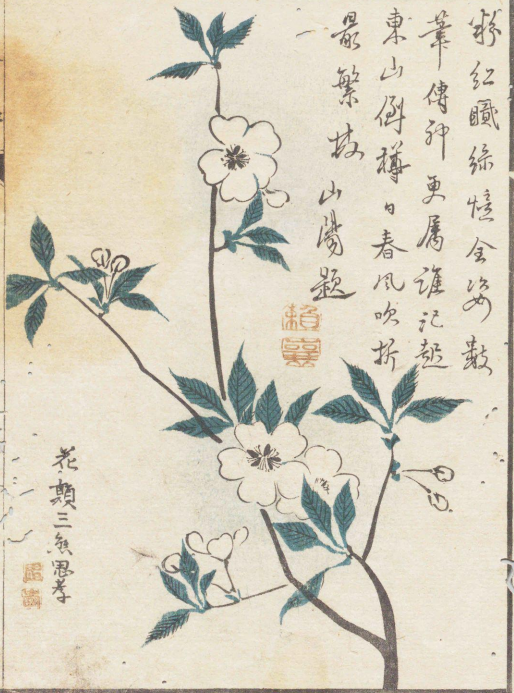 粉紅膩綠憶全姿數
筆傳神更屬誰記起
東山倒樽日春風吹折
最繁枝 山陽題
賴襄
花顛三熊思孝